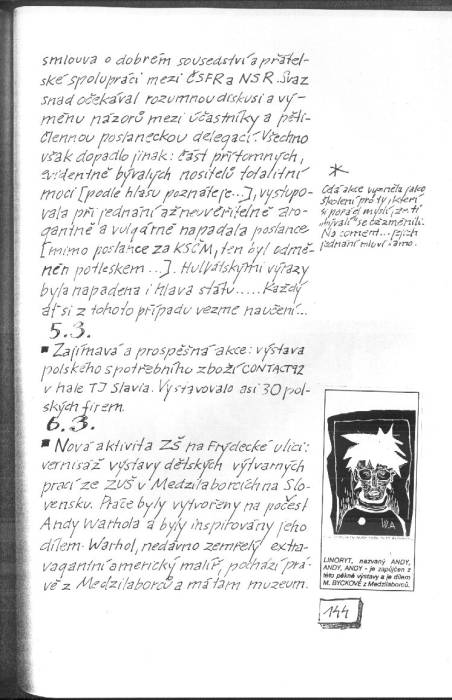 smlouva o dobrém sousedství a přátel-
ské spolupráci mezi ČSFR a NSR. Svaz
snad očekával rozumnou diskusi a vý-
měnu názorů mezi účastníky a pěti-
člennou poslaneckou delegací. Všechno
však dopadlo jinak: část přítomných,
evidentně bývalých nositelů totalitní
moci [podle hlasu poznáte je...], vystupo-
vala při jednání až neuvěřitelně aro-
gantně a vulgárně napadala poslance
[mimo poslance za KSČM, ten byl odmě-
něn potleskem...]. Hulvátskými výrazy
byla napadena i hlava státu..... Každý
ať si z tohoto případu vezme naučení...
5.3.
▪ Zajímavá a prospěšná akce: výstava
polského spotřebního zboží CONTACT 92
v hale TJ Slavia. Vystavovalo asi 30 pol-
ských firem.
6.3.
▪ Nová aktivita ZŠ na Frýdecké ulici:
vernisáž výstavy dětských výtvarných
prací ze ZUŠ v Medzilaborcích na Slo-
vensku. Práce byly vytvořeny na počest
Andy Warhola a byly inspirovány jeho
dílem. Warhol, nedávno zemřelý extra-
vagantní americký malíř, pochází prá-
vě z Medzilaborců a má tam muzeum.
*
Celá akce vyzněla jako
školení pro ty, kteří
si pořád myslí, že ti
"bývalí" se nezměnili.
No coment... jejich
jednání mluví samo.
LINORYT, nazvaný ANDY,
ANDY, ANDY - je zapůjčen z
této pěkné výstavy a je dílem
M. BYCKOVÉ z Medzilaborců.
144